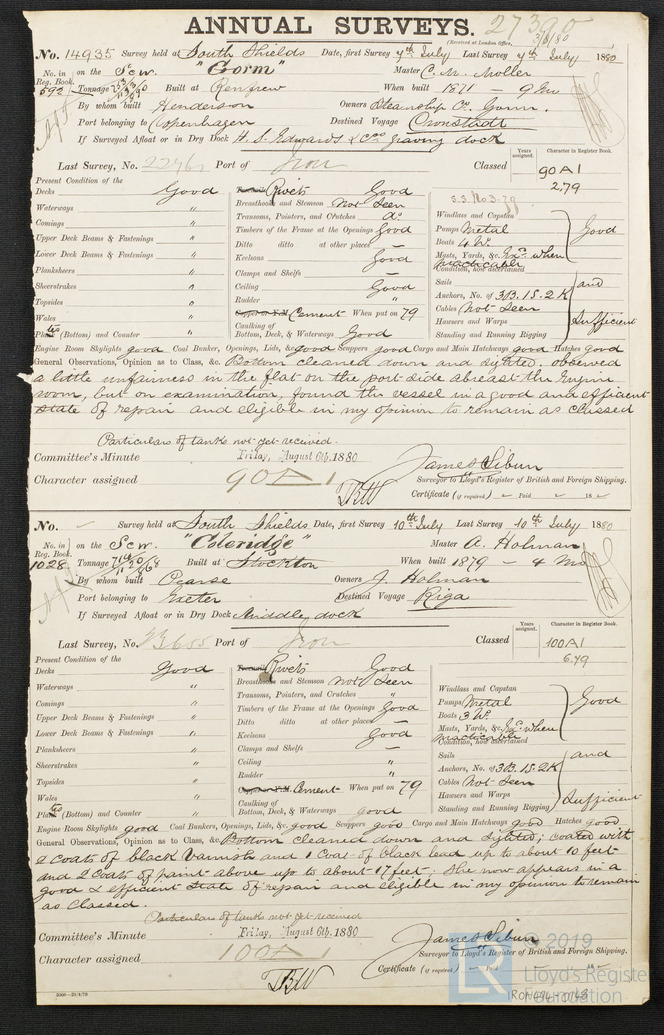 ANNUAL SURVEYS. 27390
(Received at London Office, 3/8/80
No. 14935 Survey held at South Shields Date, first Survey 7th July Last Survey 7th July 1880
No. in Reg. Book. 592 on the Scw. "Gorm" Master C. M. Moller
Tonnage Built at Renfrew When built 1871 - 9 Mo
By whom built Henderson Owners Steamship Co. Gorm.
Port belonging to Copenhagen Destined Voyage Cronstadt
If Surveyed Afloat or in Dry Dock H. S. Edwards & Co's graving dock
Years assigned. Character in Register Book.
Last Survey, No. Port of Iron Classed 90A1
2.79
Present Condition of the
Decks Good Rivets Good
Waterways " Breasthooks and Stemson Not Seen
Comings " Transoms, Pointers, and Crutches do
Upper Deck Beams & Fastenings " Timbers of the Frame at the Openings Good
Lower Deck Beams & Fastenings " Ditto ditto at other places —
Planksheers " Keelsons Good
Sheerstrakes " Clamps and Shelfs —
Topsides " Ceiling Good
Wales " Rudder
Plates (Bottom) and Counter " Cement When put on 79
Caulking of Bottom, Deck, & Waterways Good
Windlass and Capstan
Pumps Metal Good
Boats 4 W.
Masts, Yards, &c. Exd. when practicable
Condition, how ascertained
Sails and
Anchors, No. of 3B. 1S. 2K
Cables Not Seen
Hawsers and Warps Sufficient
Standing and Running Rigging
Engine Room Skylights good Coal Bunker, Openings, Lids, &c good Scuppers good Cargo and Main Hatchways good Hatches good
General Observations, Opinion as to Class, &c. Bottom cleaned down and sighted, observed
a little unfairness in the flat on the port side abreast the Engine
room, but on examination, found the vessel in a good and efficient
state of repair and eligible in my opinion to remain as classed
Particulars of tanks not yet received.
Committee's Minute Friday, August 6th, 1880
Character assigned 90A1 James Sibun
Surveyor to Lloyd's Register of British and Foreign Shipping.
Certificate (if required) Paid 18
No. — Survey held at South Shields Date, first Survey 10th July Last Survey 10th July 1880
No. in Reg. Book. 1028 on the Scw. "Coleridge" Master A. Holman
Tonnage Built at Stockton When built 1879 - 4 Mo
By whom built Pearse Owners J. Holman
Port belonging to Exeter Destined Voyage Riga
If Surveyed Afloat or in Dry Dock Middle dock
Years assigned. Character in Register Book.
Last Survey, No. Port of Iron Classed 100A1
5.79
Present Condition of the
Decks Good Rivets Good
Waterways " Breasthooks and Stemson Not Seen
Comings " Transoms, Pointers, and Crutches "
Upper Deck Beams & Fastenings " Timbers of the Frame at the Openings Good
Lower Deck Beams & Fastenings " Ditto ditto at other places —
Planksheers " Keelsons Good
Sheerstrakes " Clamps and Shelfs —
Topsides " Ceiling "
Wales " Rudder
Plates (Bottom) and Counter " Cement When put on 79
Caulking of Bottom, Deck, & Waterways good
Windlass and Capstan
Pumps Metal Good
Boats 3 W.
Masts, Yards, &c. Exd. when practicable
Condition, how ascertained
Sails and
Anchors, No. of 3B. 1S. 2K
Cables Not Seen
Hawsers and Warps Sufficient
Standing and Running Rigging
Engine Room Skylights good Coal Bunkers, Openings, Lids, &c good Scuppers good Cargo and Main Hatchways good Hatches good
General Observations, Opinion as to Class, &c. Bottom cleaned down and sighted; coated with
2 coats of black varnish and 1 Coat of black lead up to about 10 feet
and 2 coats of paint above up to about 17 feet; She now appears in a
good & efficient State of repair and eligible in my opinion to remain
as Classed.
Particulars of tanks not yet received
Committee's Minute Friday, August 6th, 1880
Character assigned 100A1 James Sibun
Surveyor to Lloyd's Register of British and Foreign Shipping.
Certificate (if required)
© 2019
Lloyd's Register Foundation
IRON494-0148